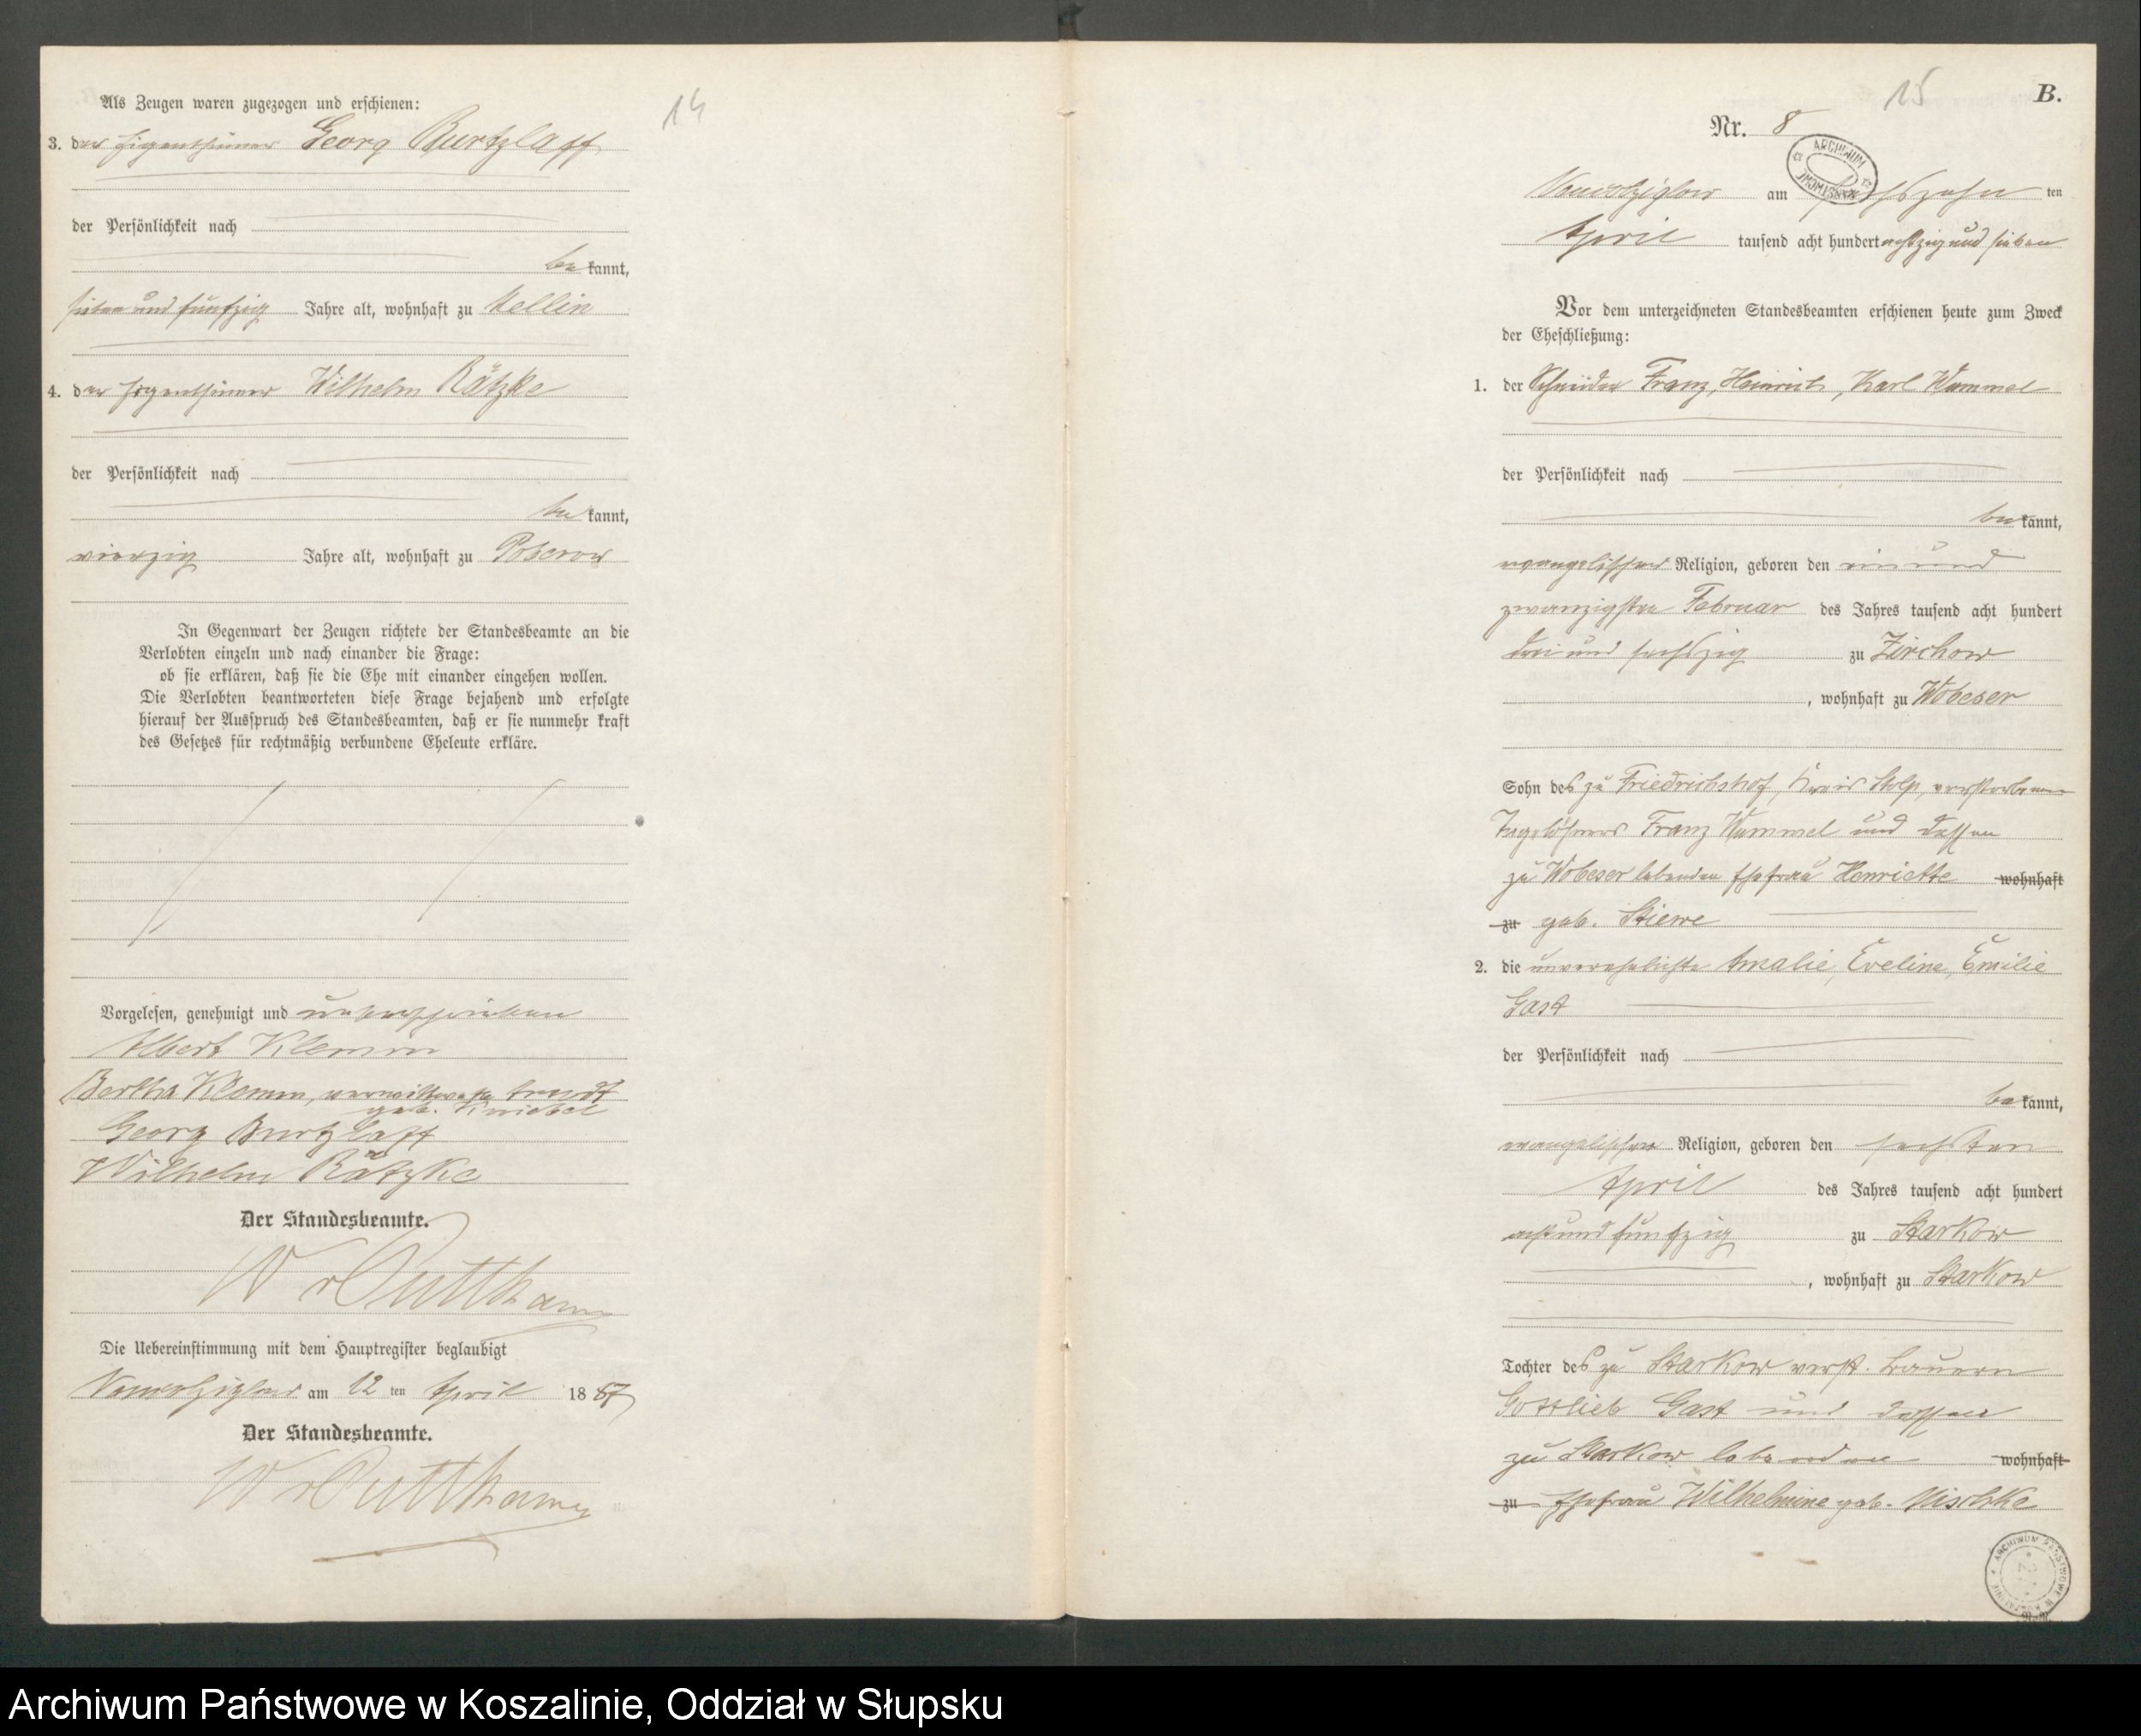 Als Zeugen waren zugezogen und erschienen:
14
3. der Eigenthümer Georg Burtzlaff
der Persönlichkeit nach
be kannt,
sieben und fünfzig Jahre alt, wohnhaft zu Kellin
4. der Eigenthümer Wilhelm Rätzke
der Persönlichkeit nach
be kannt,
vierzig Jahre alt, wohnhaft zu Poberow
In Gegenwart der Zeugen richtete der Standesbeamte an die
Verlobten einzeln und nach einander die Frage:
ob sie erklären, daß sie die Ehe mit einander eingehen wollen.
Die Verlobten beantworteten diese Frage bejahend und erfolgte
hierauf der Ausspruch des Standesbeamten, daß er sie nunmehr kraft
des Gesetzes für rechtmäßig verbundene Eheleute erkläre.
Vorgelesen, genehmigt und unterschrieben
Albert Klemm
Bertha Klemm, verwittwete Arndt
geb. Kniebel
Georg Burtzlaff
Wilhelm Rätzke
Der Standesbeamte.
W v Puttkamer
Die Uebereinstimmung mit dem Hauptregister beglaubigt
am 12 ten April 18 87
Der Standesbeamte.
W v Puttkamer
15
B.
Nr. 8
ARCHIWUM
am sechszehn ten
April tausend acht hundert achtzig und sieben
Vor dem unterzeichneten Standesbeamten erschienen heute zum Zweck
der Eheschließung:
1. der Schneider Franz, Heinrich, Karl Wummel
der Persönlichkeit nach
be kannt,
evangelischer Religion, geboren den ein und
zwanzigsten Februar des Jahres tausend acht hundert
drei und sechszig zu Zirchow
, wohnhaft zu Wobeser
Sohn des zu Friedrichshof, Kreis Stolp, verstorbenen
Tagelöhners Franz Wummel und dessen
zu Wobeser lebenden Ehefrau Henriette wohnhaft
zu geb. Stiewe
2. die unverehelichte Amalie, Eveline, Emilie
Gast
der Persönlichkeit nach
be kannt,
evangelischer Religion, geboren den sechsten
April des Jahres tausend acht hundert
acht und fünfzig zu Starkow
, wohnhaft zu Starkow
Tochter des zu Starkow verst. Bauern
Gottlieb Gast und dessen
zu Starkow lebenden wohnhaft
zu Ehefrau Wilhelmine geb. Mischke
ARCHIWUM PAŃSTWOWE W KOSZALINIE
Archiwum Państwowe w Koszalinie, Oddział w Słupsku